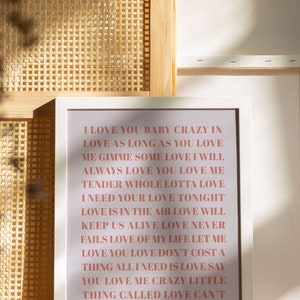 I LOVE YOU BABY CRAZY IN
LOVE AS LONG AS YOU LOVE
ME GIMME SOME LOVE I WILL
ALWAYS LOVE YOU LOVE ME
TENDER WHOLE LOTTA LOVE
I NEED YOUR LOVE TONIGHT
LOVE IS IN THE AIR LOVE WILL
KEEP US ALIVE LOVE NEVER
FAILS LOVE OF MY LIFE LET ME
LOVE YOU LOVE DON'T COST A
THING ALL I NEED IS LOVE SAY
YOU LOVE ME CRAZY LITTLE
THING CALLED LOVE CAN'T